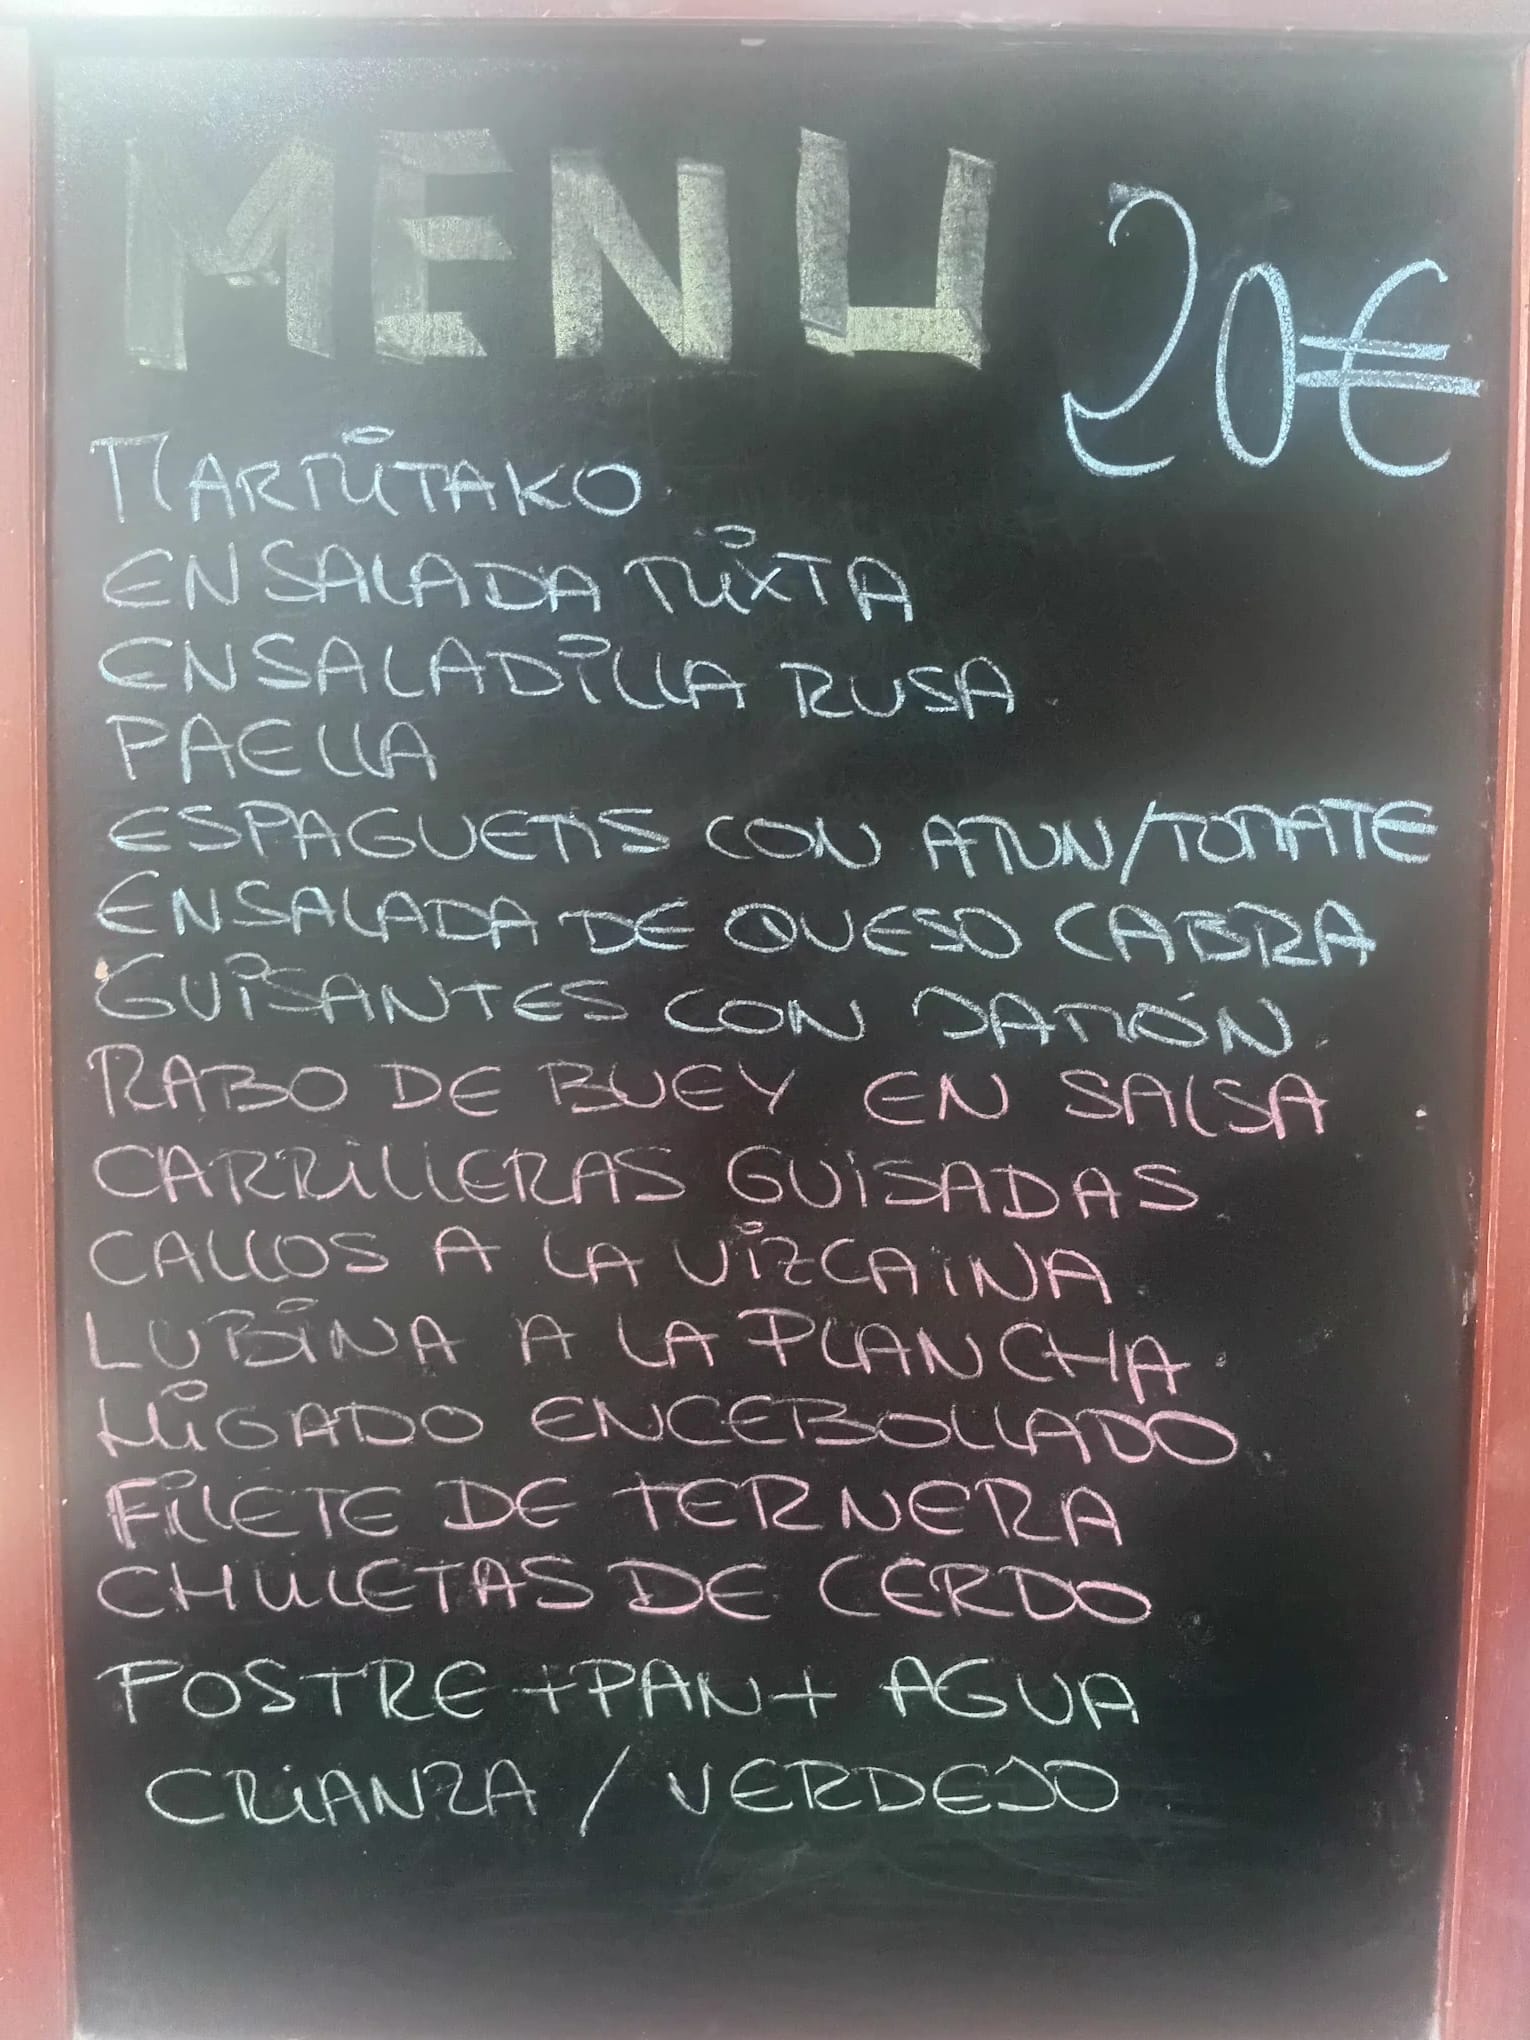 MENU 20€
MARMITAKO
ENSALADA MIXTA
ENSALADILLA RUSA
PAELLA
ESPAGUETIS CON ATUN/TOMATE
ENSALADA DE QUESO CABRA
GUISANTES CON JAMÓN
RABO DE BUEY EN SALSA
CARRILLERAS GUISADAS
CALLOS A LA VIZCAINA
LUBINA A LA PLANCHA
HIGADO ENCEBOLLADO
FILETE DE TERNERA
CHULETAS DE CERDO
POSTRE + PAN + AGUA
CRIANZA / VERDEJO